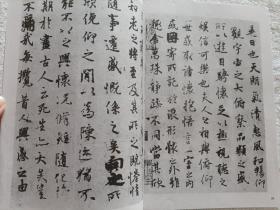 是日也天朗氣清惠風和暢仰
觀宇宙之大俯察品類之盛
所以遊目騁懷足以極視聽之
娛信可樂也夫人之相與俯仰
一世或取諸懷抱悟言一室之內
或因寄所託放浪形骸之外雖
趣舍萬殊靜躁不同當其欣
知老之將至及其所之既惓情
隨事遷感慨係之矣向之所
欣俛仰之間以為陳迹猶不
能不以之興懷況脩短隨化終
期於盡古人云死生亦大矣豈
不痛哉每攬昔人興感之由